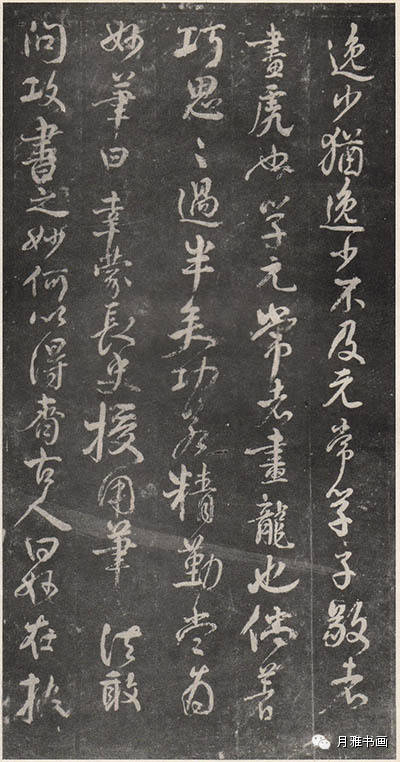 逸少猶逸少不及元常學子敬者
畫虎也學元常者畫龍也倘著
巧思〻過半矣功若精勤當為
妙筆曰幸蒙長史授用筆 法敢
問攻書之妙何以得齊古人曰妙在執
月雅书画